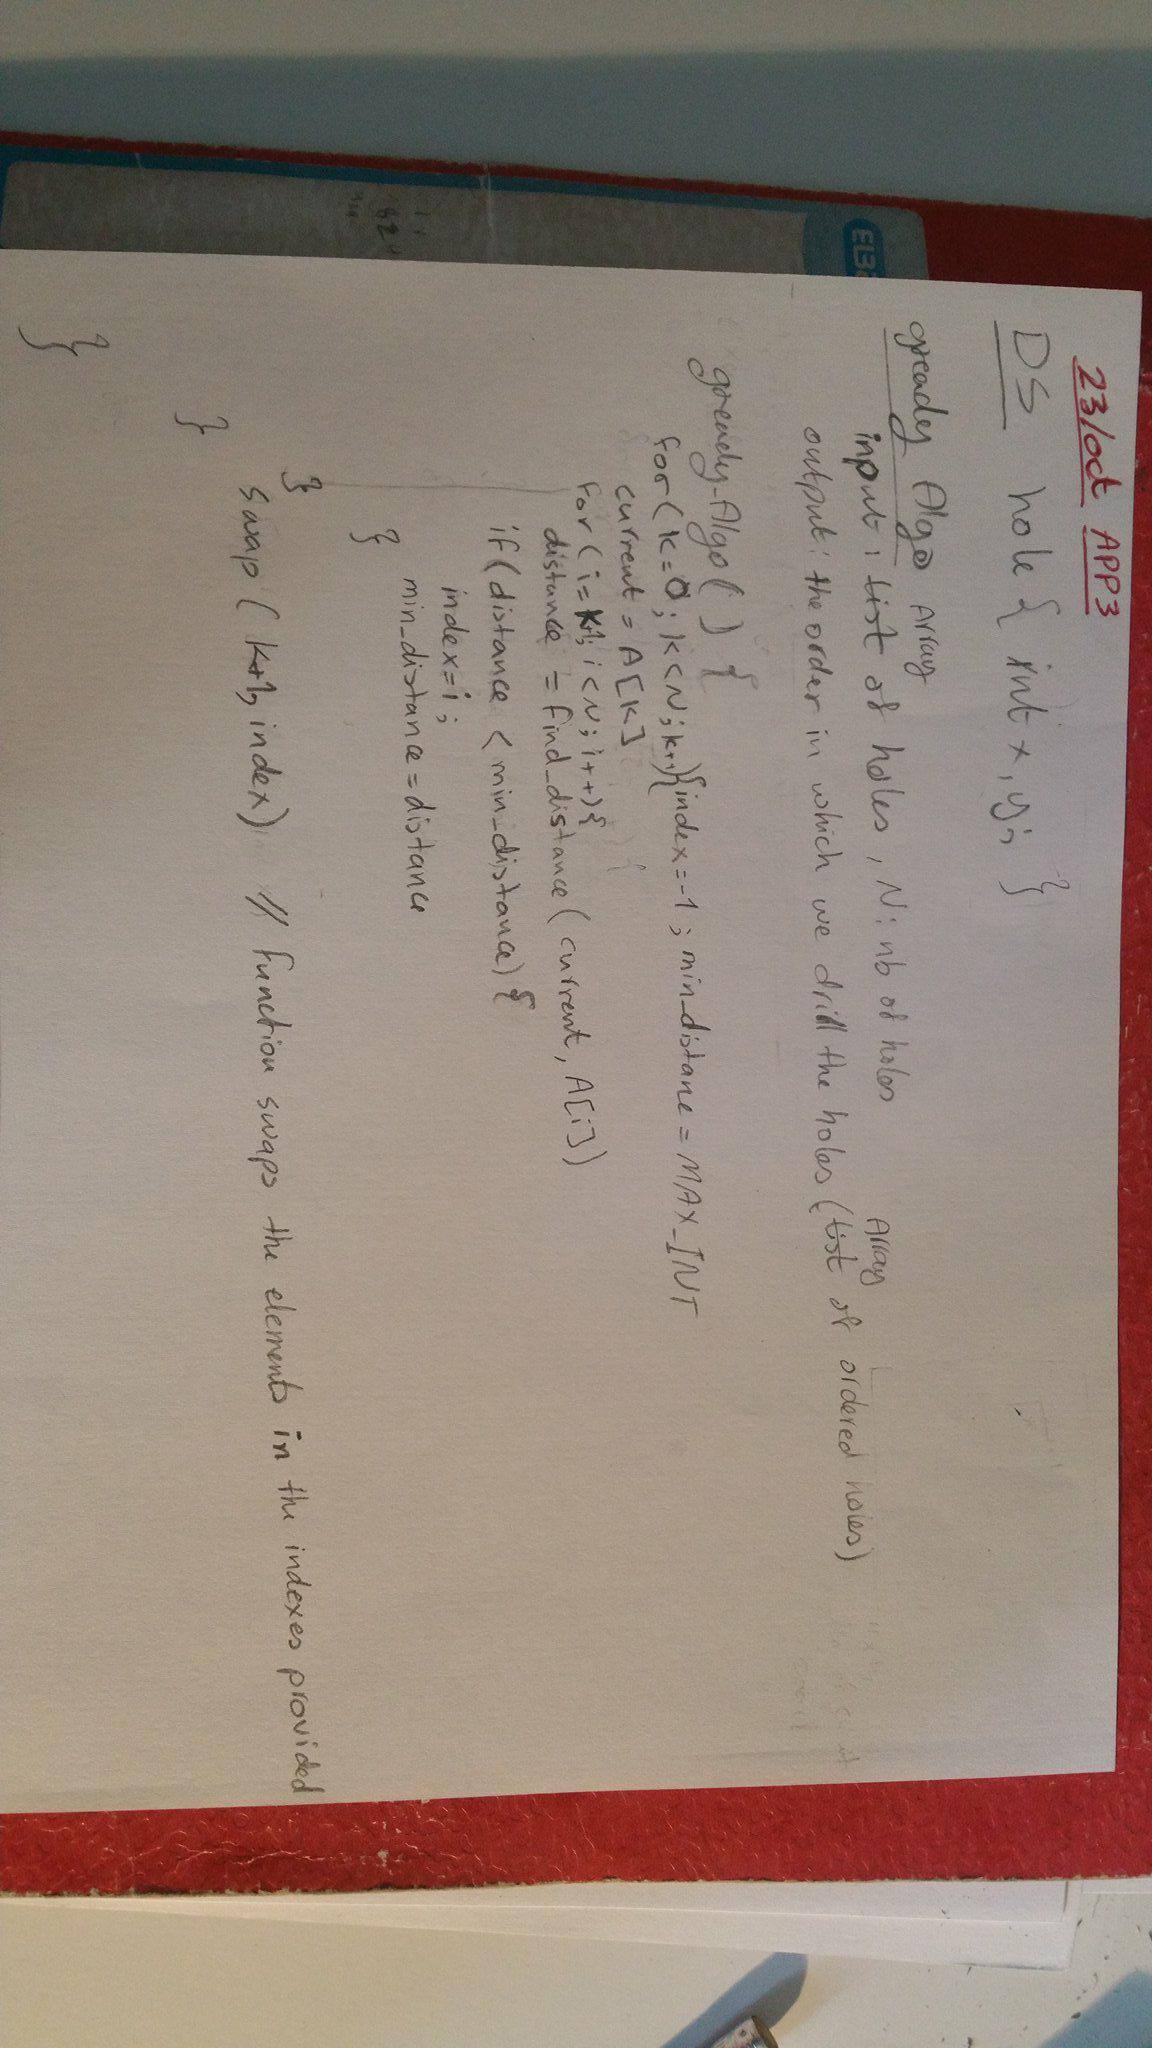 23/oct APP3
DS hole { int x, y; }
gready Algo
Array
input: list of holes, N: nb of holes
Array
output: the order in which we drill the holes (list of ordered holes)
gready-Algo( ) {
for(k=0; k<N; k++){index=-1; min_distane = MAX_INT
current = A[k]
for(i=k+1; i<N; i++){
distance = find_distance(current, A[i])
if(distance < min_distance) {
index=i;
min_distance=distance
}
}
swap (k+1, index) // function swaps the elements in the indexes provided
}
}